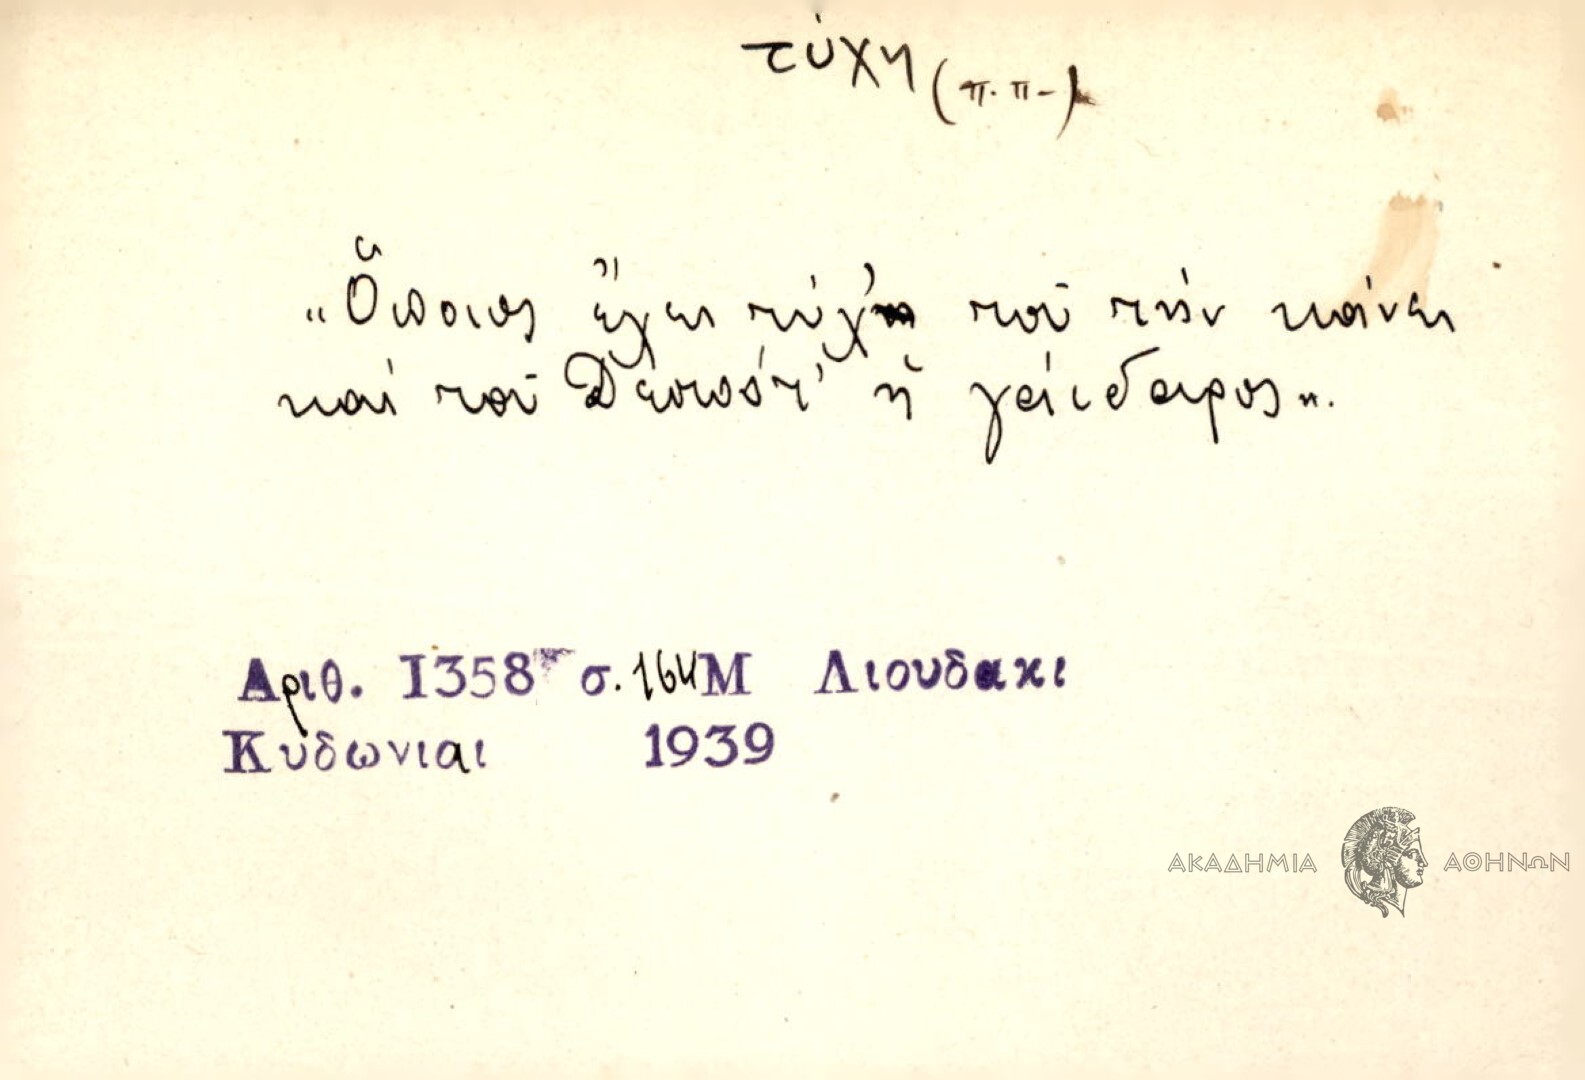 τύχη (π.π-)
"Ὅποιος ἔχει τύχη τοῦ τήν κάνει
καί τοῦ Δεσπότ' ἡ γάιδαρος".
Αριθ. 1358 σ. 164 Μ Λιουδακι
Κυδωνιαι 1939
ΑΚΑΔΗΜΙΑ ΑΘΗΝΩΝ